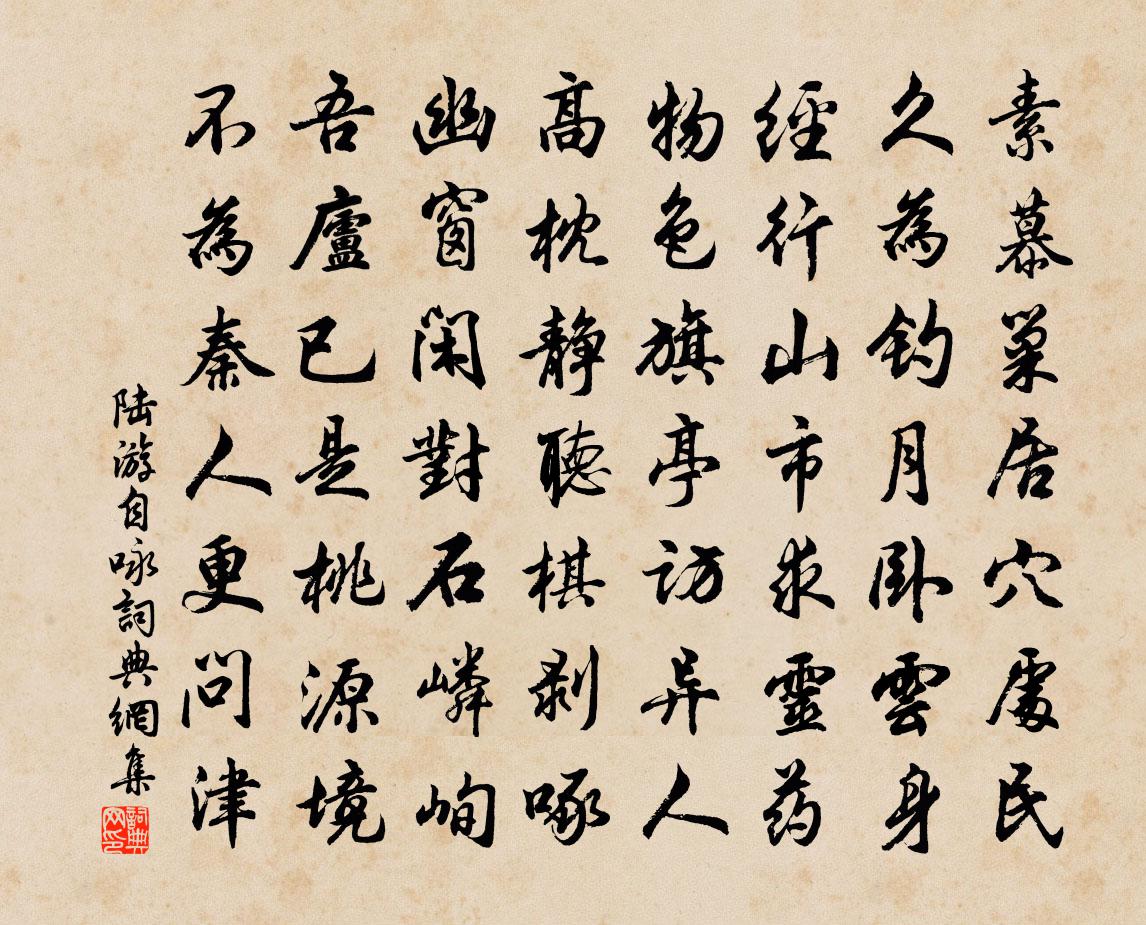 素慕巢居穴處民
久為釣月卧雲身
經行山市求靈药
物色旗亭访异人
高枕静聽棋剥啄
幽窗闲對石嶙峋
吾廬已是桃源境
不為秦人更问津
陆游自咏詞典網集
詞典
网印